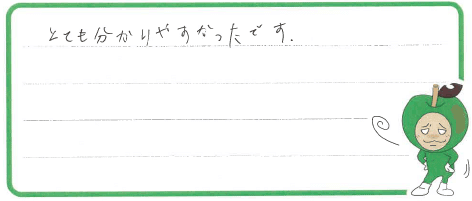 とても分かりやすかったです.